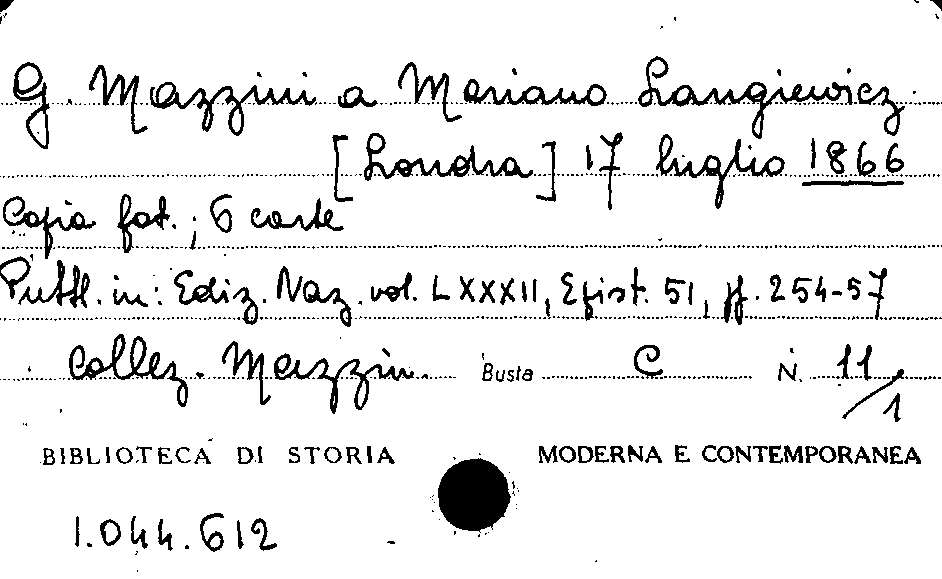 G. Mazzini a Mariano Langiewicz
[Londra] 17 luglio 1866
Copia fot.; 6 carte
Pubbl. in: Ediz. Naz. vol. LXXXII, Epist. 51, pp. 254-57
Collez. Mazzin. Busta C N. 11/1
BIBLIOTECA DI STORIA MODERNA E CONTEMPORANEA
1.044.612